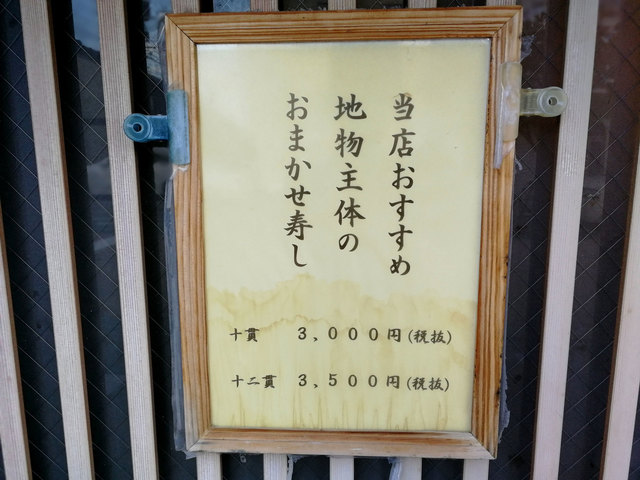 当店おすすめ
地物主体の
おまかせ寿し
十貫　３，０００円(税抜)
十二貫　３，５００円(税抜)